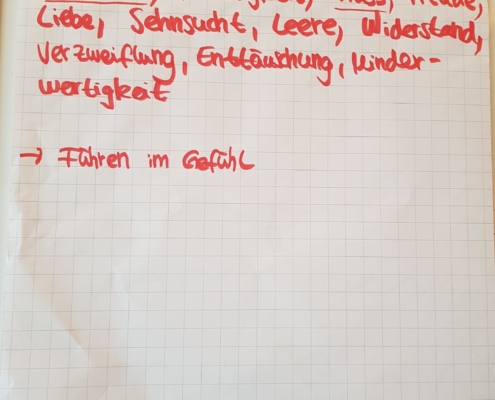 Liebe, Sehnsucht, Leere, Widerstand,
Verzweiflung, Enttäuschung, Minder-
wertigkeit
→ Führen im Gefühl